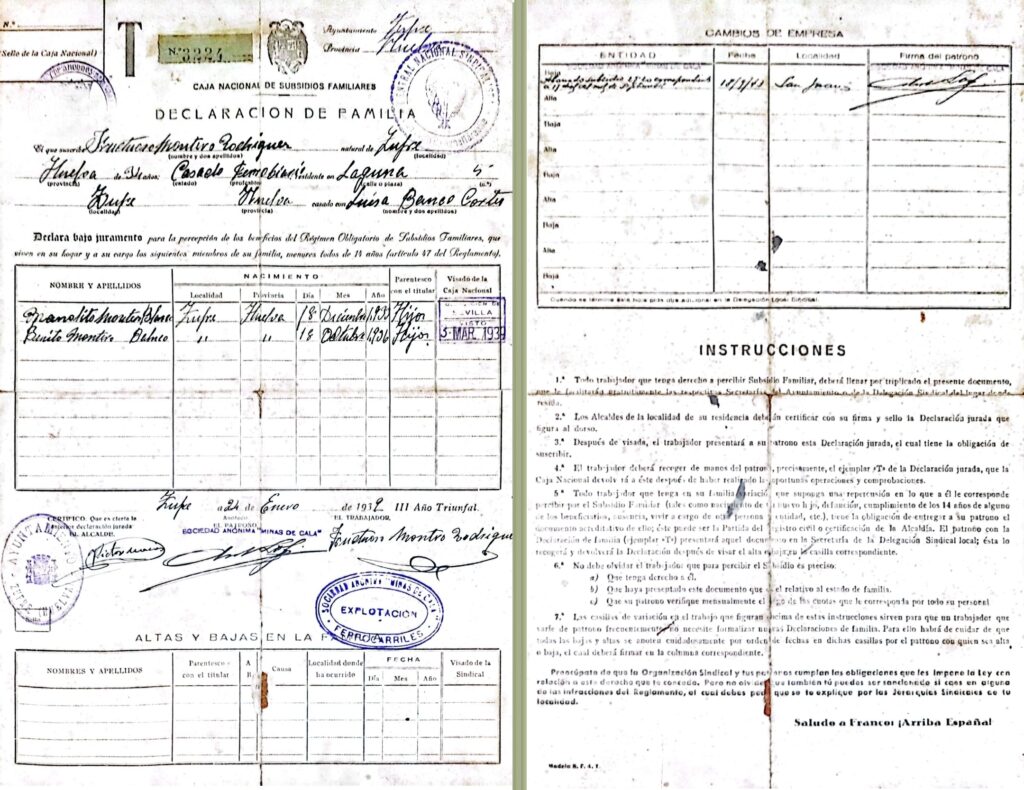 N.º
(Sello de la Caja Nacional)
T
Nº 3334
Ayuntamiento Zufre
Provincia Huelva
CENTRAL NACIONAL SINDICAL
CAJA NACIONAL DE SUBSIDIOS FAMILIARES
DECLARACION DE FAMILIA
El que suscribe Montero Rodriguez natural de Zufre
(nombre y dos apellidos) (localidad)
Huelva de 34 años, Casado residente en Laguna 5
(provincia) (estado) (profesión) (calle o plaza) (n.º)
Zufre Huelva casado con Luisa Cortes
(localidad) (provincia) (nombre y dos apellidos)
Declara bajo juramento para la percepción de los beneficios del Régimen Obligatorio de Subsidios Familiares, que
viven en su hogar y a su cargo los siguientes miembros de su familia, menores todos de 14 años (artículo 47 del Reglamento).
NOMBRE Y APELLIDOS
NACIMIENTO
Localidad Provincia Día Mes Año
Parentesco con el titular
Visado de la Caja Nacional
Montero Zufre Huelva 18 Diciembre Hijos
Benito Montero „ „ 18 Octubre 1,936 Hijos
SEVILLA
VISTO
3 MAR. 1939
Zufre a 24 de Enero de 1939 III Año Triunfal.
CERTIFICO: Que es cierta la
anterior declaración jurada
EL ALCALDE,
Anotado
EL PATRONO,
SOCIEDAD ANÓNIMA "MINAS DE CALA"
EL TRABAJADOR,
Montero Rodriguez
AYUNTAMIENTO
SOCIEDAD ANONIMA "MINAS DE CALA"
EXPLOTACIÓN
FERROCARRILES
Sello
ALTAS Y BAJAS EN LA
NOMBRES Y APELLIDOS
Parentesco con el titular
A
B
Causa
Localidad donde ha ocurrido
FECHA
Día Mes Año
Visado de la Sindical
CAMBIOS DE EMPRESA
ENTIDAD Fecha Localidad Firma del patrono
San Juan
Alta
Baja
Alta
Baja
Alta
Baja
Alta
Baja
Cuando se termine esta hoja pida otra adicional en la Delegación Local Sindical.
INSTRUCCIONES
1.ª Todo trabajador que tenga derecho a percibir Subsidio Familiar, deberá llenar por triplicado el presente documento,
que le facilitarán gratuitamente las respectivas Secretarías del Ayuntamiento o de la Delegación Sindical del lugar donde
resida.
2.ª Los Alcaldes de la localidad de su residencia deberán certificar con su firma y sello la Declaración jurada que
figura al dorso.
3.ª Después de visada, el trabajador presentará a su patrono esta Declaración jurada, el cual tiene la obligación de
suscribir.
4.ª El trabajador deberá recoger de manos del patrono, precisamente, el ejemplar «T» de la Declaración jurada, que la
Caja Nacional devolverá a éste después de haber realizado las oportunas operaciones y comprobaciones.
5.ª Todo trabajador que tenga en su familia variación que suponga una repercusión en lo que a él le corresponde
percibir por el Subsidio Familiar (tales como nacimiento de nuevos hijos, defunción, cumplimiento de los 14 años de alguno
de los beneficiarios, etc.), tiene la obligación de entregar a su patrono el
documento acreditativo de ello; éste puede ser la Partida del Registro civil o certificación de la Alcaldía. El patrono con la
Declaración de familia (ejemplar «T») presentará aquel documento en la Secretaría de la Delegación Sindical local; ésta lo
recogerá y devolverá la Declaración después de visar el alta o baja, en su casilla correspondiente.
6.ª No debe olvidar el trabajador que para percibir el Subsidio es preciso:
a) Que tenga derecho a él.
b) Que haya presentado este documento que es el relativo al estado de familia.
c) Que su patrono verifique mensualmente el pago de las cuotas que le corresponda por todo su personal
7.ª Las casillas de variación en el trabajo que figuran encima de estas instrucciones sirven para que un trabajador que
varíe de patrono frecuentemente no necesite formalizar nuevas Declaraciones de familia. Para ello habrá de cuidar de que
todas las bajas y altas se anoten cuidadosamente por orden de fechas en dichas casillas por el patrono con quien sea alta
o baja, el cual deberá firmar en la columna correspondiente.
Preocúpate de que la Organización Sindical y tus patronos cumplan las obligaciones que les impone la Ley con
relación a este derecho que te concede. Pero no olvides que también tú puedes ser sancionado si caes en alguna
de las infracciones del Reglamento, el cual debes pedir que se te explique por las Jerarquías Sindicales de tu
localidad.
Saludo a Franco: ¡Arriba España!
Modelo S. F. 4. T.